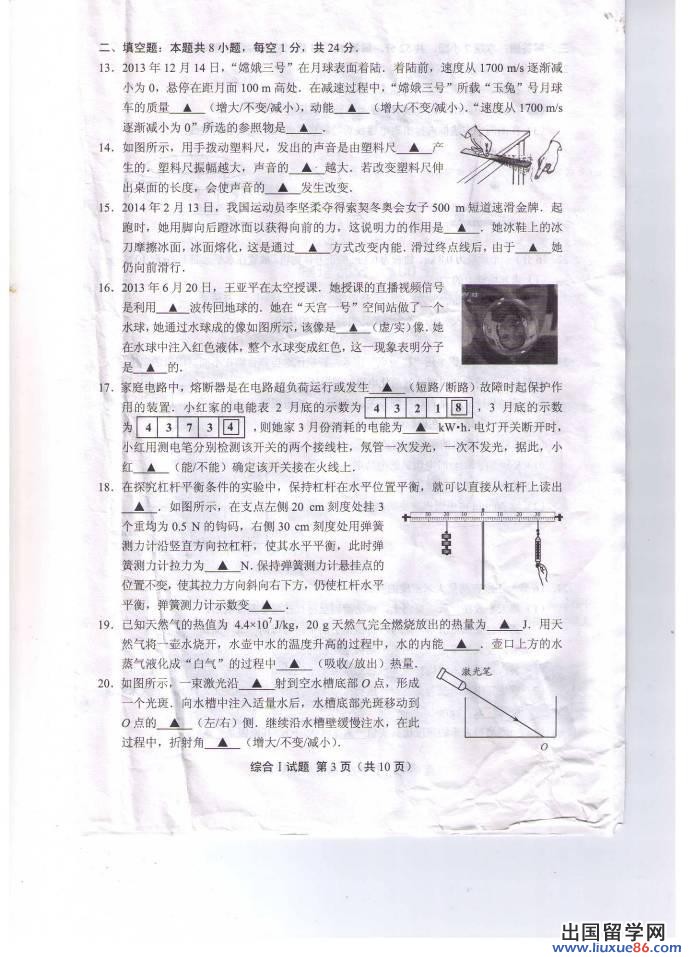 二、填空题：本题共 8 小题，每空 1 分，共 24 分．
13. 2013 年 12 月 14 日，“嫦娥三号”在月球表面着陆．着陆前，速度从 1700 m/s 逐渐减
小为 0，悬停在距月面 100 m 高处．在减速过程中，“嫦娥三号”所载“玉兔”号月球
车的质量 ▲ （增大/不变/减小），动能 ▲ （增大/不变/减小）．“速度从 1700 m/s
逐渐减小为 0”所选的参照物是 ▲ ．
14. 如图所示，用手拨动塑料尺，发出的声音是由塑料尺 ▲ 产
生的．塑料尺振幅越大，声音的 ▲ 越大．若改变塑料尺伸
出桌面的长度，会使声音的 ▲ 发生改变．
15. 2014 年 2 月 13 日，我国运动员李坚柔夺得索契冬奥会女子 500 m 短道速滑金牌．起
跑时，她用脚向后蹬冰面以获得向前的力，这说明力的作用是 ▲ ．她冰鞋上的冰
刀摩擦冰面，冰面熔化，这是通过 ▲ 方式改变内能．滑过终点线后，由于 ▲ 她
仍向前滑行．
16. 2013 年 6 月 20 日，王亚平在太空授课．她授课的直播视频信号
是利用 ▲ 波传回地球的．她在“天宫一号”空间站做了一个
水球，她通过水球成的像如图所示，该像是 ▲ （虚/实）像．她
在水球中注入红色液体，整个水球变成红色，这一现象表明分子
是 ▲ 的．
17. 家庭电路中，熔断器是在电路超负荷运行或发生 ▲ （短路/断路）故障时起保护作
用的装置．小红家的电能表 2 月底的示数为 4 3 2 1 8 ，3 月底的示数
为 4 3 7 3 4 ，则她家 3 月份消耗的电能为 ▲ kW•h．电灯开关断开时，
小红用测电笔分别检测该开关的两个接线柱，氖管一次发光，一次不发光，据此，小
红 ▲ （能/不能）确定该开关接在火线上．
18. 在探究杠杆平衡条件的实验中，保持杠杆在水平位置平衡，就可以直接从杠杆上读出
▲ ．如图所示，在支点左侧 20 cm 刻度处挂 3
个重均为 0.5 N 的钩码，右侧 30 cm 刻度处用弹簧
测力计沿竖直方向拉杠杆，使其水平平衡，此时弹
簧测力计拉力为 ▲ N．保持弹簧测力计悬挂点的
位置不变，使其拉力方向斜向右下方，仍使杠杆水平
平衡，弹簧测力计示数变 ▲ ．
19. 已知天然气的热值为 4.4×10⁷ J/kg，20 g 天然气完全燃烧放出的热量为 ▲ J．用天
然气将一壶水烧开，水壶中水的温度升高的过程中，水的内能 ▲ ．壶口上方的水
蒸气液化成“白气”的过程中 ▲ （吸收/放出）热量．
20. 如图所示，一束激光沿 ▲ 射到空水槽底部 O 点，形成
一个光斑．向水槽中注入适量水后，水槽底部光斑移动到
O 点的 ▲ （左/右）侧．继续沿水槽壁缓慢注水，在此
过程中，折射角 ▲ （增大/不变/减小）．
激光笔
O
综合 I 试题 第 3 页（共 10 页）
出国留学网
www.liuxue86.com